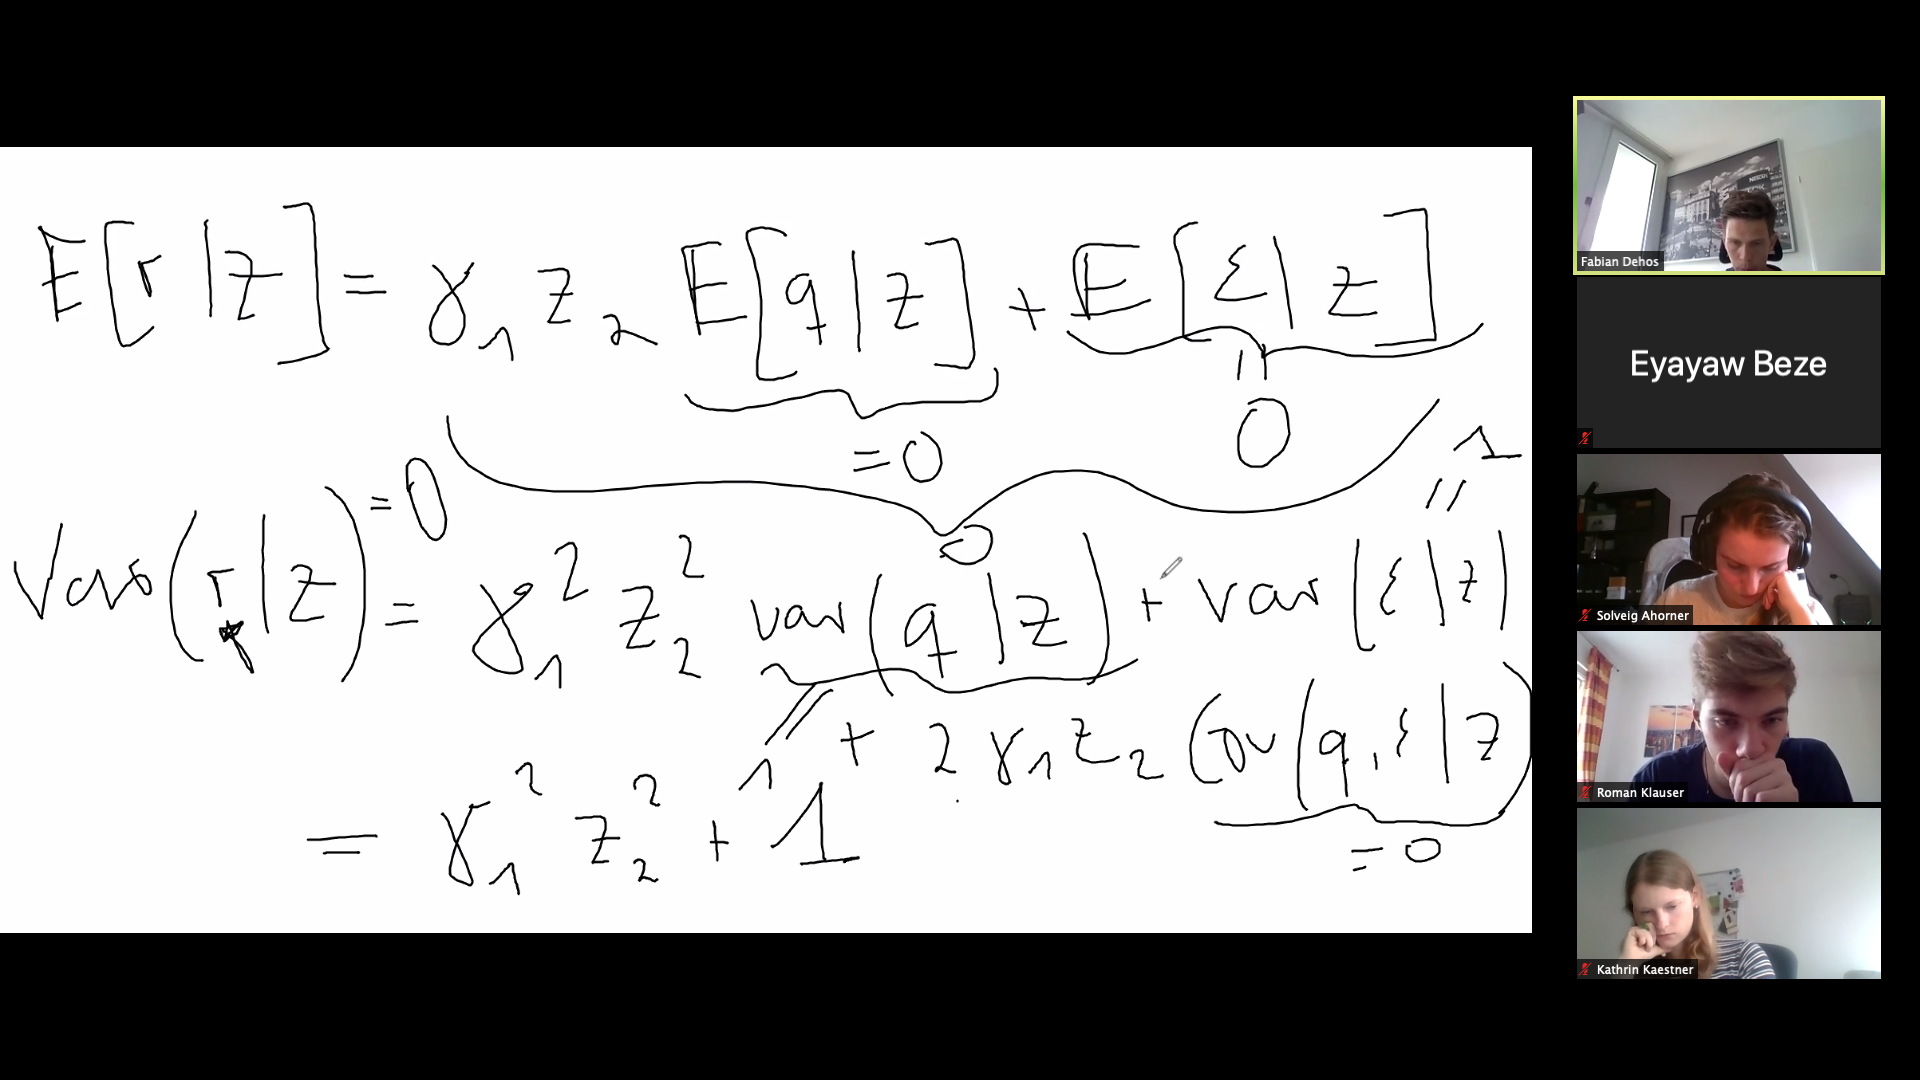 E[r|z] = γ₁ z₂ E[q|z] + E[ε|z]
= 0
0
0
1
Var(r|z) = γ₁² z₂² var(q|z) + var(ε|z)
= 0
1
+ 2 γ₁ z₂ Cov(q, ε|z)
= 0
= γ₁² z₂² + 1
Fabian Dehos
Eyayaw Beze
Solveig Ahorner
Roman Klauser
Kathrin Kaestner